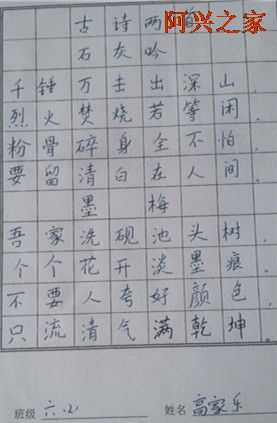 阿兴之家
古诗两首
石灰吟
千锤万击出深山，
烈火焚烧若等闲。
粉骨碎身全不怕，
要留清白在人间。
墨梅
吾家洗砚池头树，
个个花开淡墨痕。
不要人夸好颜色，
只流清气满乾坤。
班级 六 姓名 高家乐